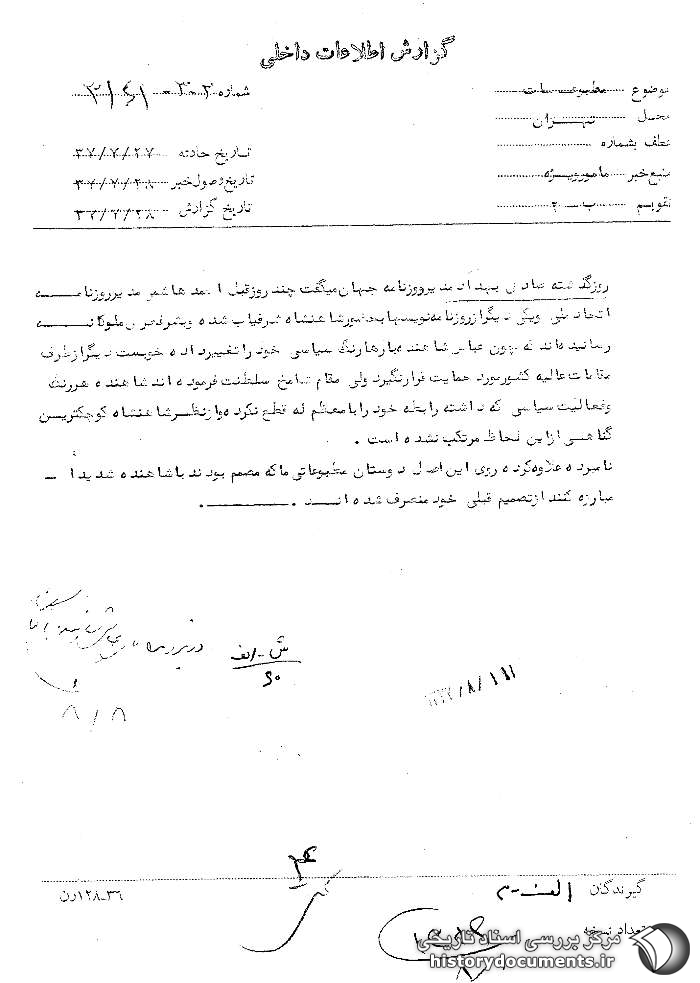 گزارش اطلاعات داخلی
موضوع مطبوعات
شماره
محل تهران
عطف بشماره
تاریخ حادثه ۳۷/۷/۲۷
منبع خبر مامور ویژه
تاریخ وصول خبر ۳۷/۷/۲۸
تقویم ب-۲
تاریخ گزارش ۳۷/۷/۲۸
روزگذشته صادق بهداد مدیر روزنامه جهان میگفت چند روز قبل احمد هاشمی مدیر روزنامه
اتحاد ملی ویکی دیگر از روزنامه نویسها بحضور شاهنشاه شرفیاب شده وبشرفعرض ملوکانه
رسانیده‌اند که چون عباس شاهنده بارها رنگ سیاسی خود را تغییر داده خوبست دیگر از طرف
مقامات عالیه کشور مورد حمایت قرار نگیرد ولی مقام شامخ سلطنت فرموده اند شاهنده هر رنگ
وفعالیت سیاسی که داشته رابطه خود را با معظم له قطع نکرده و از نظر شاهنشاه کوچکترین
گناهی از این لحاظ مرتکب نشده است .
نامبرده علاوه کرده روی این اصل دوستان مطبوعاتی ما که مصمم بودند با شاهنده شدیدا -
مبارزه کنند از تصمیم قبلی خود منصرف شده اند .
ش - الف
۶۰
۸/۸
گیرندگان الف - م
۳۶-۱۲۸ د ن
تعداد نسخه
مرکز بررسی اسناد تاریخی
historydocuments.ir